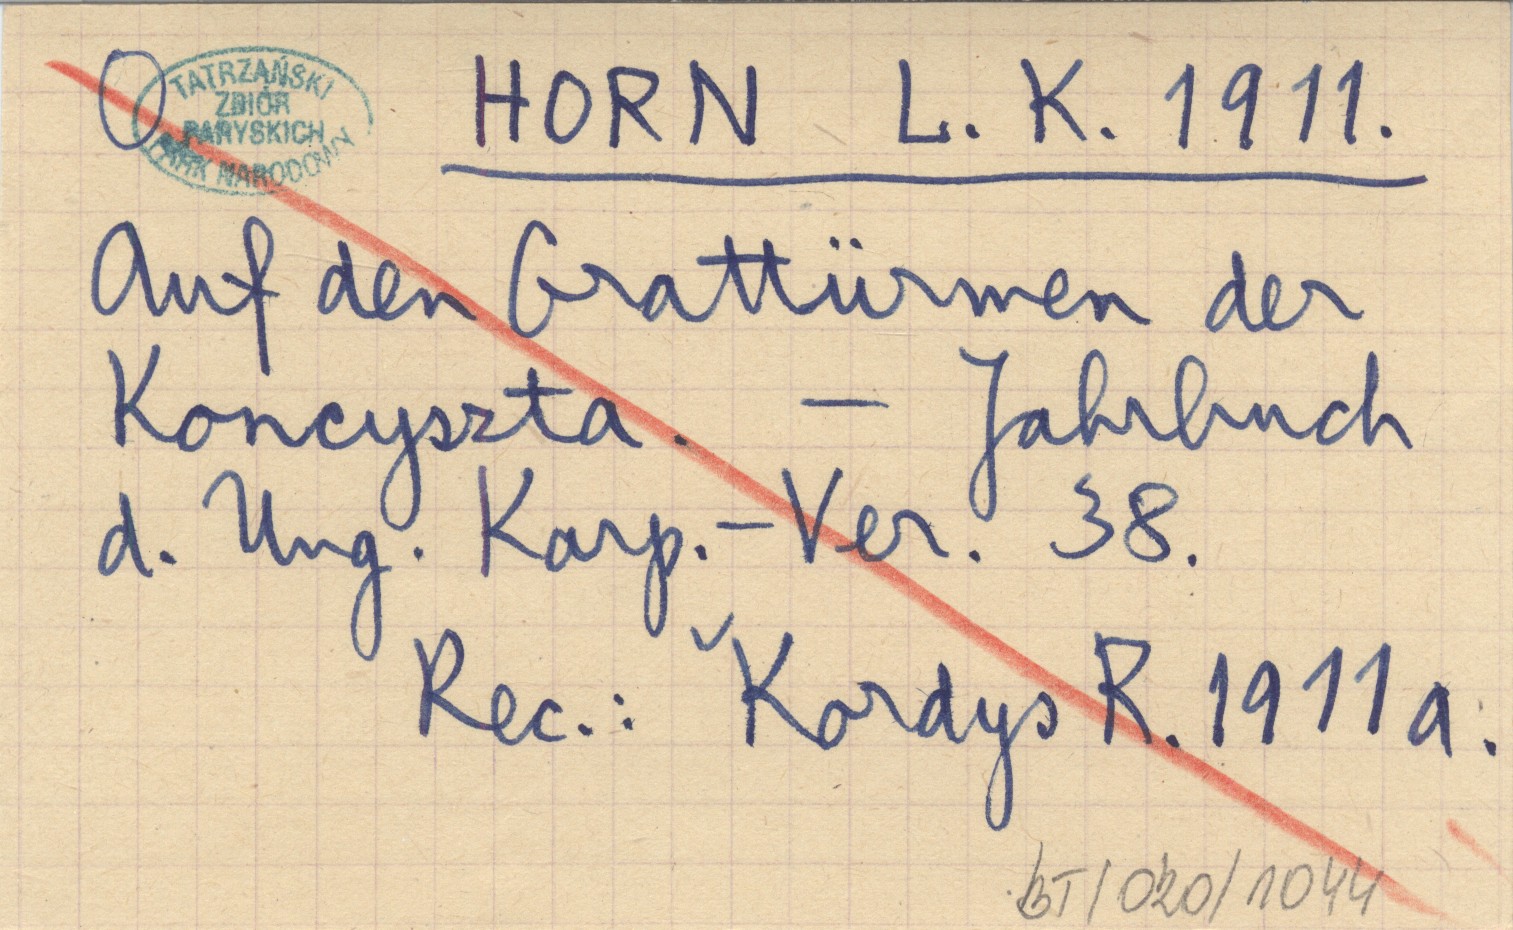 TATRZAŃSKI
ZBIÓR
PARYSKICH
PARK NARODOWY
HORN L. K. 1911.
Auf den Grattürmen der
Koncyszta. — Jahrbuch
d. Ung. Karp.-Ver. 38.
Rec.: Kordys R. 1911a.
BT/020/1044